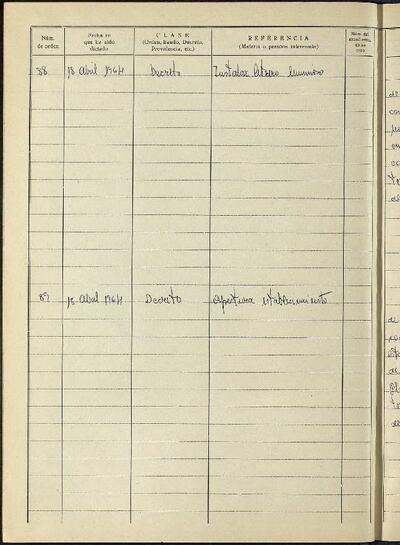 Núm. de orden
Fecha en que ha sido dictado
CLASE
(Orden, Bando, Decreto, Providencia, etc.)
REFERENCIA
(Materia o persona interesada)
Núm. del
88 18 Abril 1964 Decreto Instalar letrero luminoso
89 18 Abril 1964 Decreto Apertura establecimiento